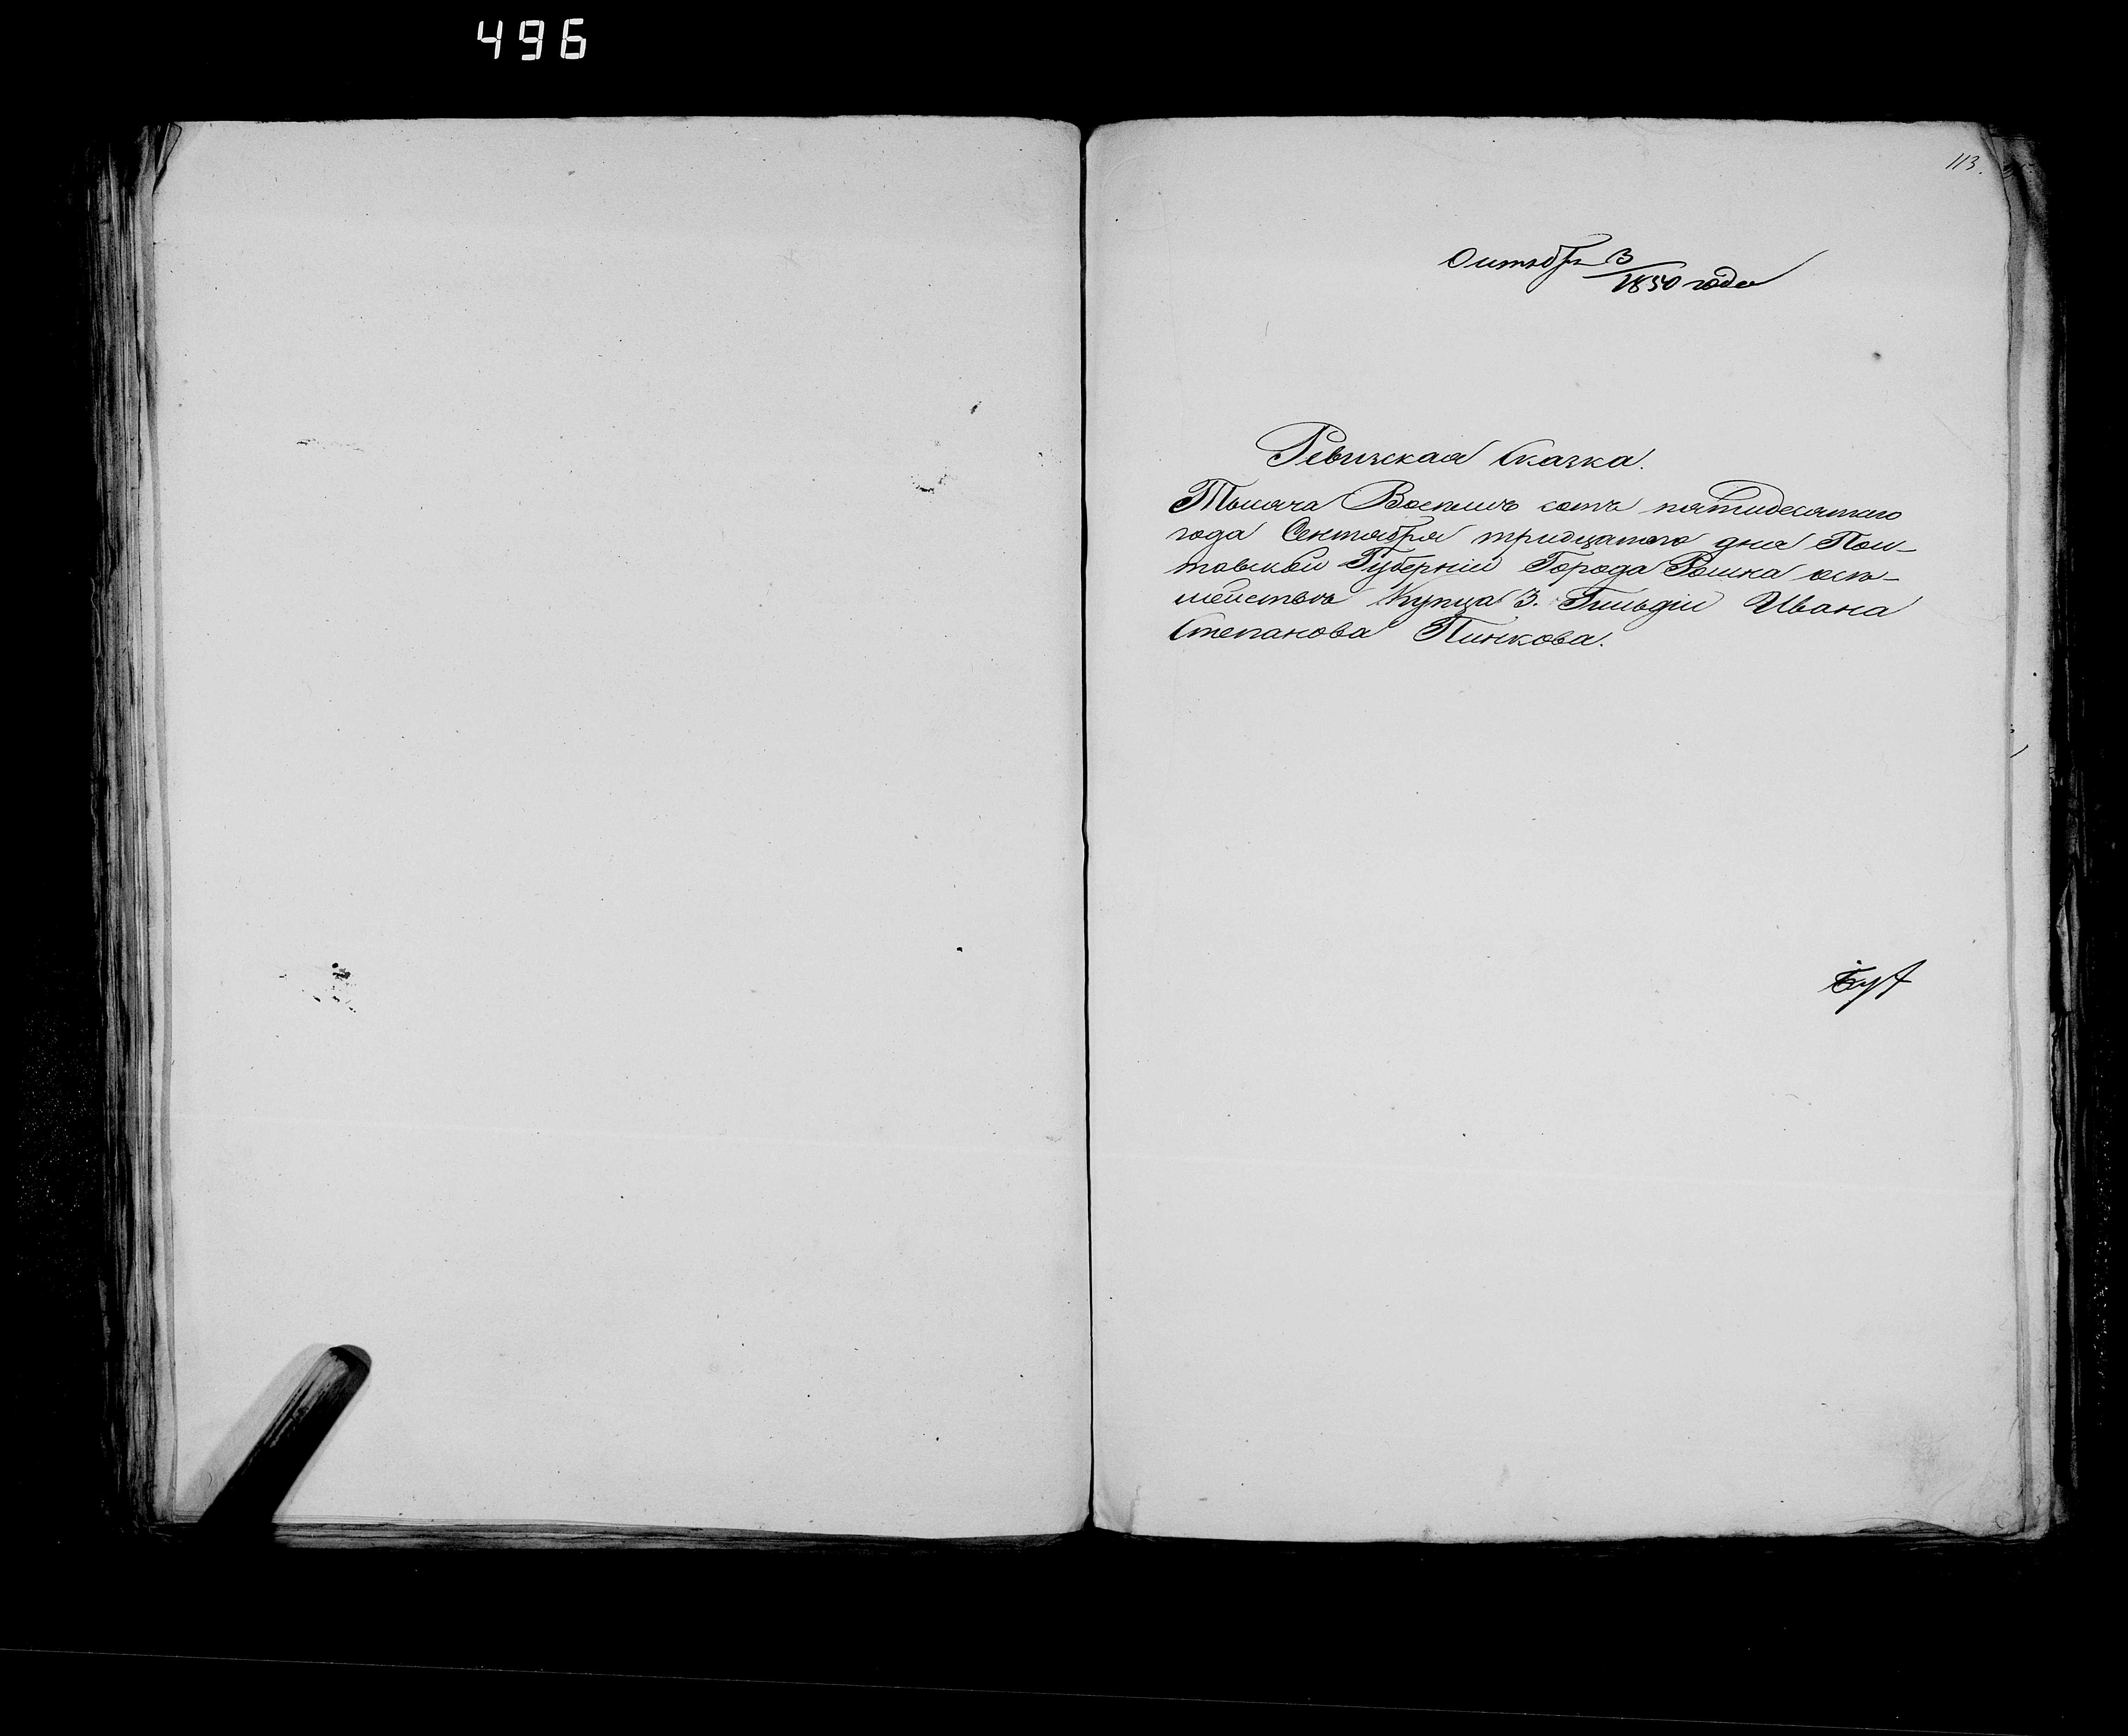 496
113.
Октября 3
1850 года
Ревизская Сказка.
Тысяча Восемь сотъ пятидесятого
года Сентября тридцатого дня Пол-
тавской Губерніи Города Ромна осѣ-
мействѣ Купца 3. Гильдіи Ивана
Степанова Пинкова.